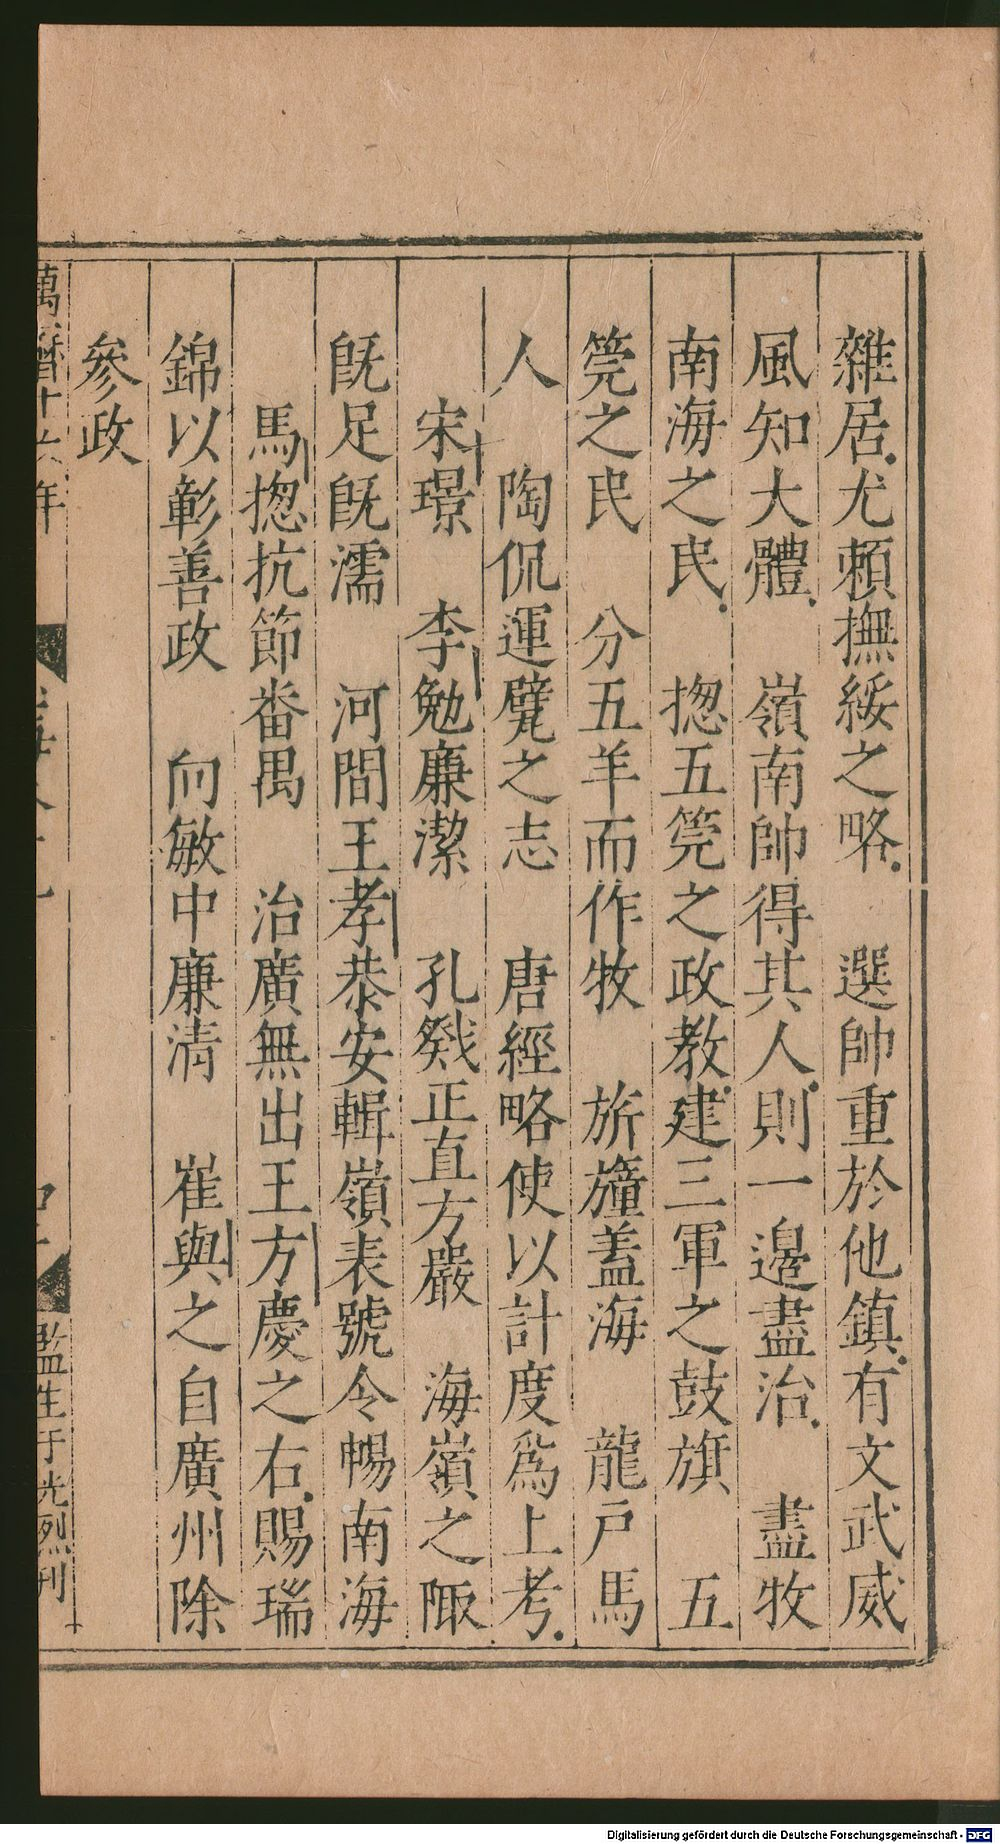 雜居尤頼撫綏之略　選帥重於他鎮有文武威
風知大體　嶺南帥得其人則一邊盡治　盡牧
南海之民　揔五筦之政教建三軍之鼓旗　五
筦之民　分五羊而作牧　旂旜蓋海　龍戸馬
人　陶侃運甓之志　唐經略使以計度爲上考
宋璟　李勉廉潔　孔戣正直方嚴　海嶺之陬
旣足旣濡　河間王孝恭安輯嶺表號令暢南海
馬揔抗節番禺　治廣無出王方慶之右賜瑞
錦以彰善政　向敏中廉清　崔與之自廣州除
參政
萬曆十六年
監生于光烈刊
Digitalisierung gefördert durch die Deutsche Forschungsgemeinschaft - DFG